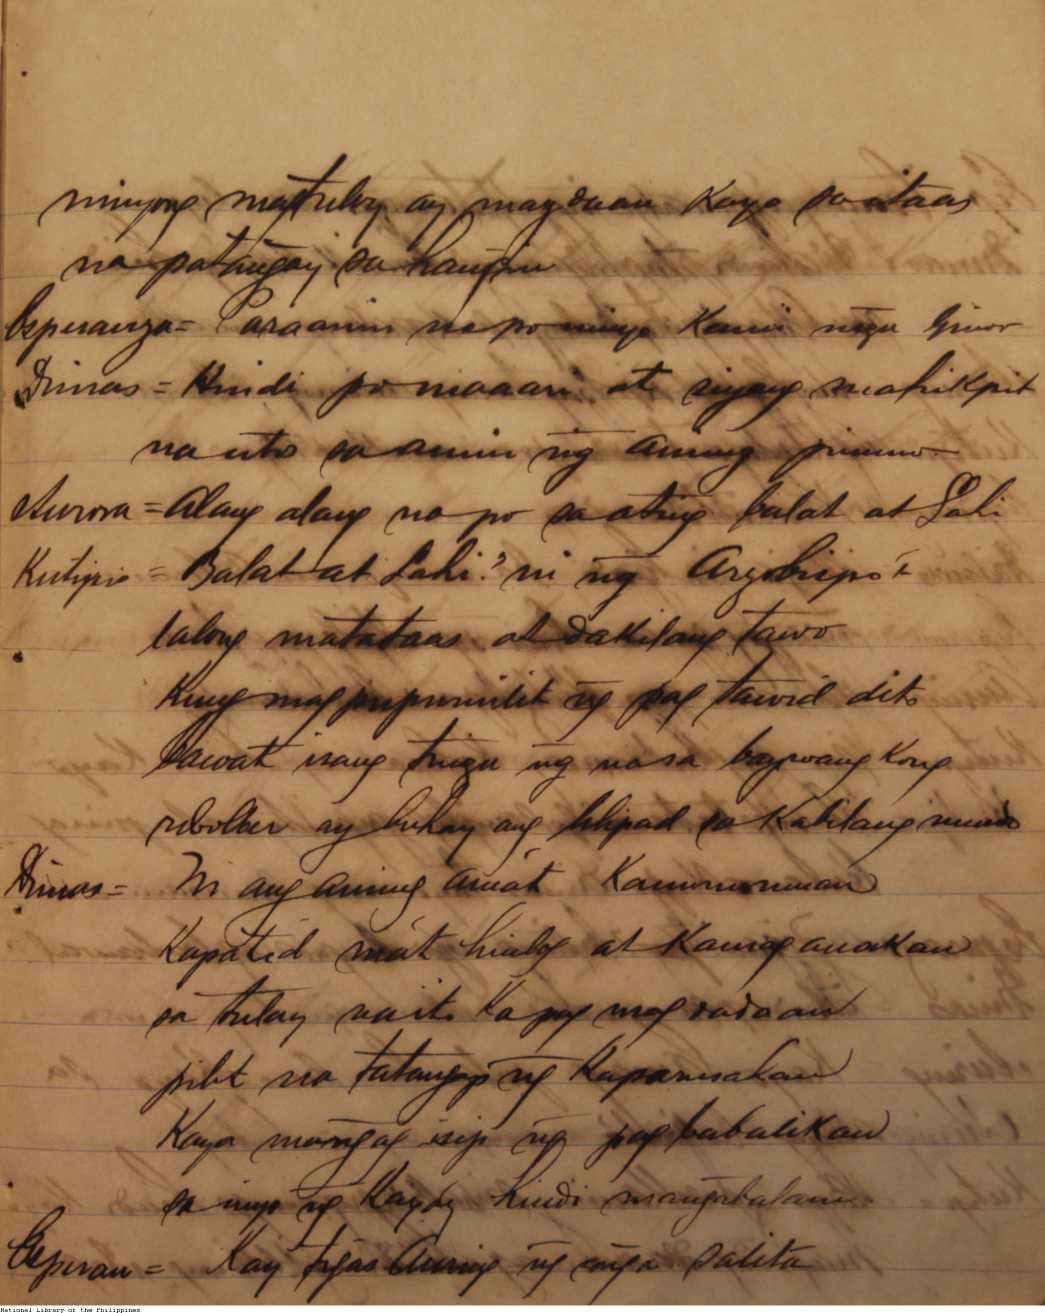 ninyong magtuloy ay magdaan kayo sa itaas
na patangay sa hangin
Esperanza = Paraanin na po ninyo kami mga Ginoo
Dimas = Hindi po maaari at siyang mahikpit
na utos sa amin ñg aming pinuno
Aurora = Alang alang na po sa ating balat at Lahi
Kutipio = Balat at Lahi? ni ñg Arzobispo't
lalong matataas at dakilang tawo
kung mag pupumilit ñg pag tawid dito
bawat isang tinga ñg nasa baywang kong
rebolber ay buhay ang lilipad sa kabilang mundo
Dimas = Ni ang aming ama't
kapatid ma't hinlog at kamag anakan
sa tulay na ito kapag mag dadaan
pilit na tatangap ñg kaparusahan
kaya mangag isip ñg pag babalikan
sa inyo ñg kayo'y hindi mangabalam
Esperan = Kay tigas Auring ñg mga salita
National Library of the Philippines